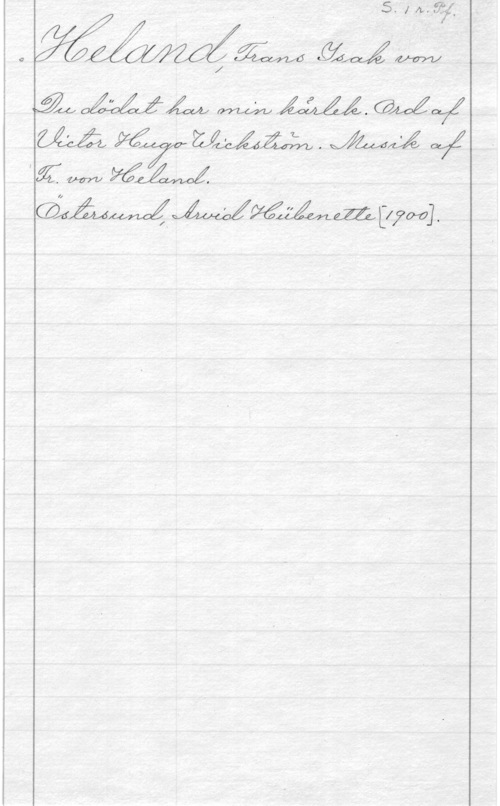 S. 1 r. Pf.
Heland, Frans Isak von
Du dödat har min kärlek. Ord af
Victor Hugo Wickström. Musik af
Fr. von Heland.
Östersund, Arvid Hübenette [1900].